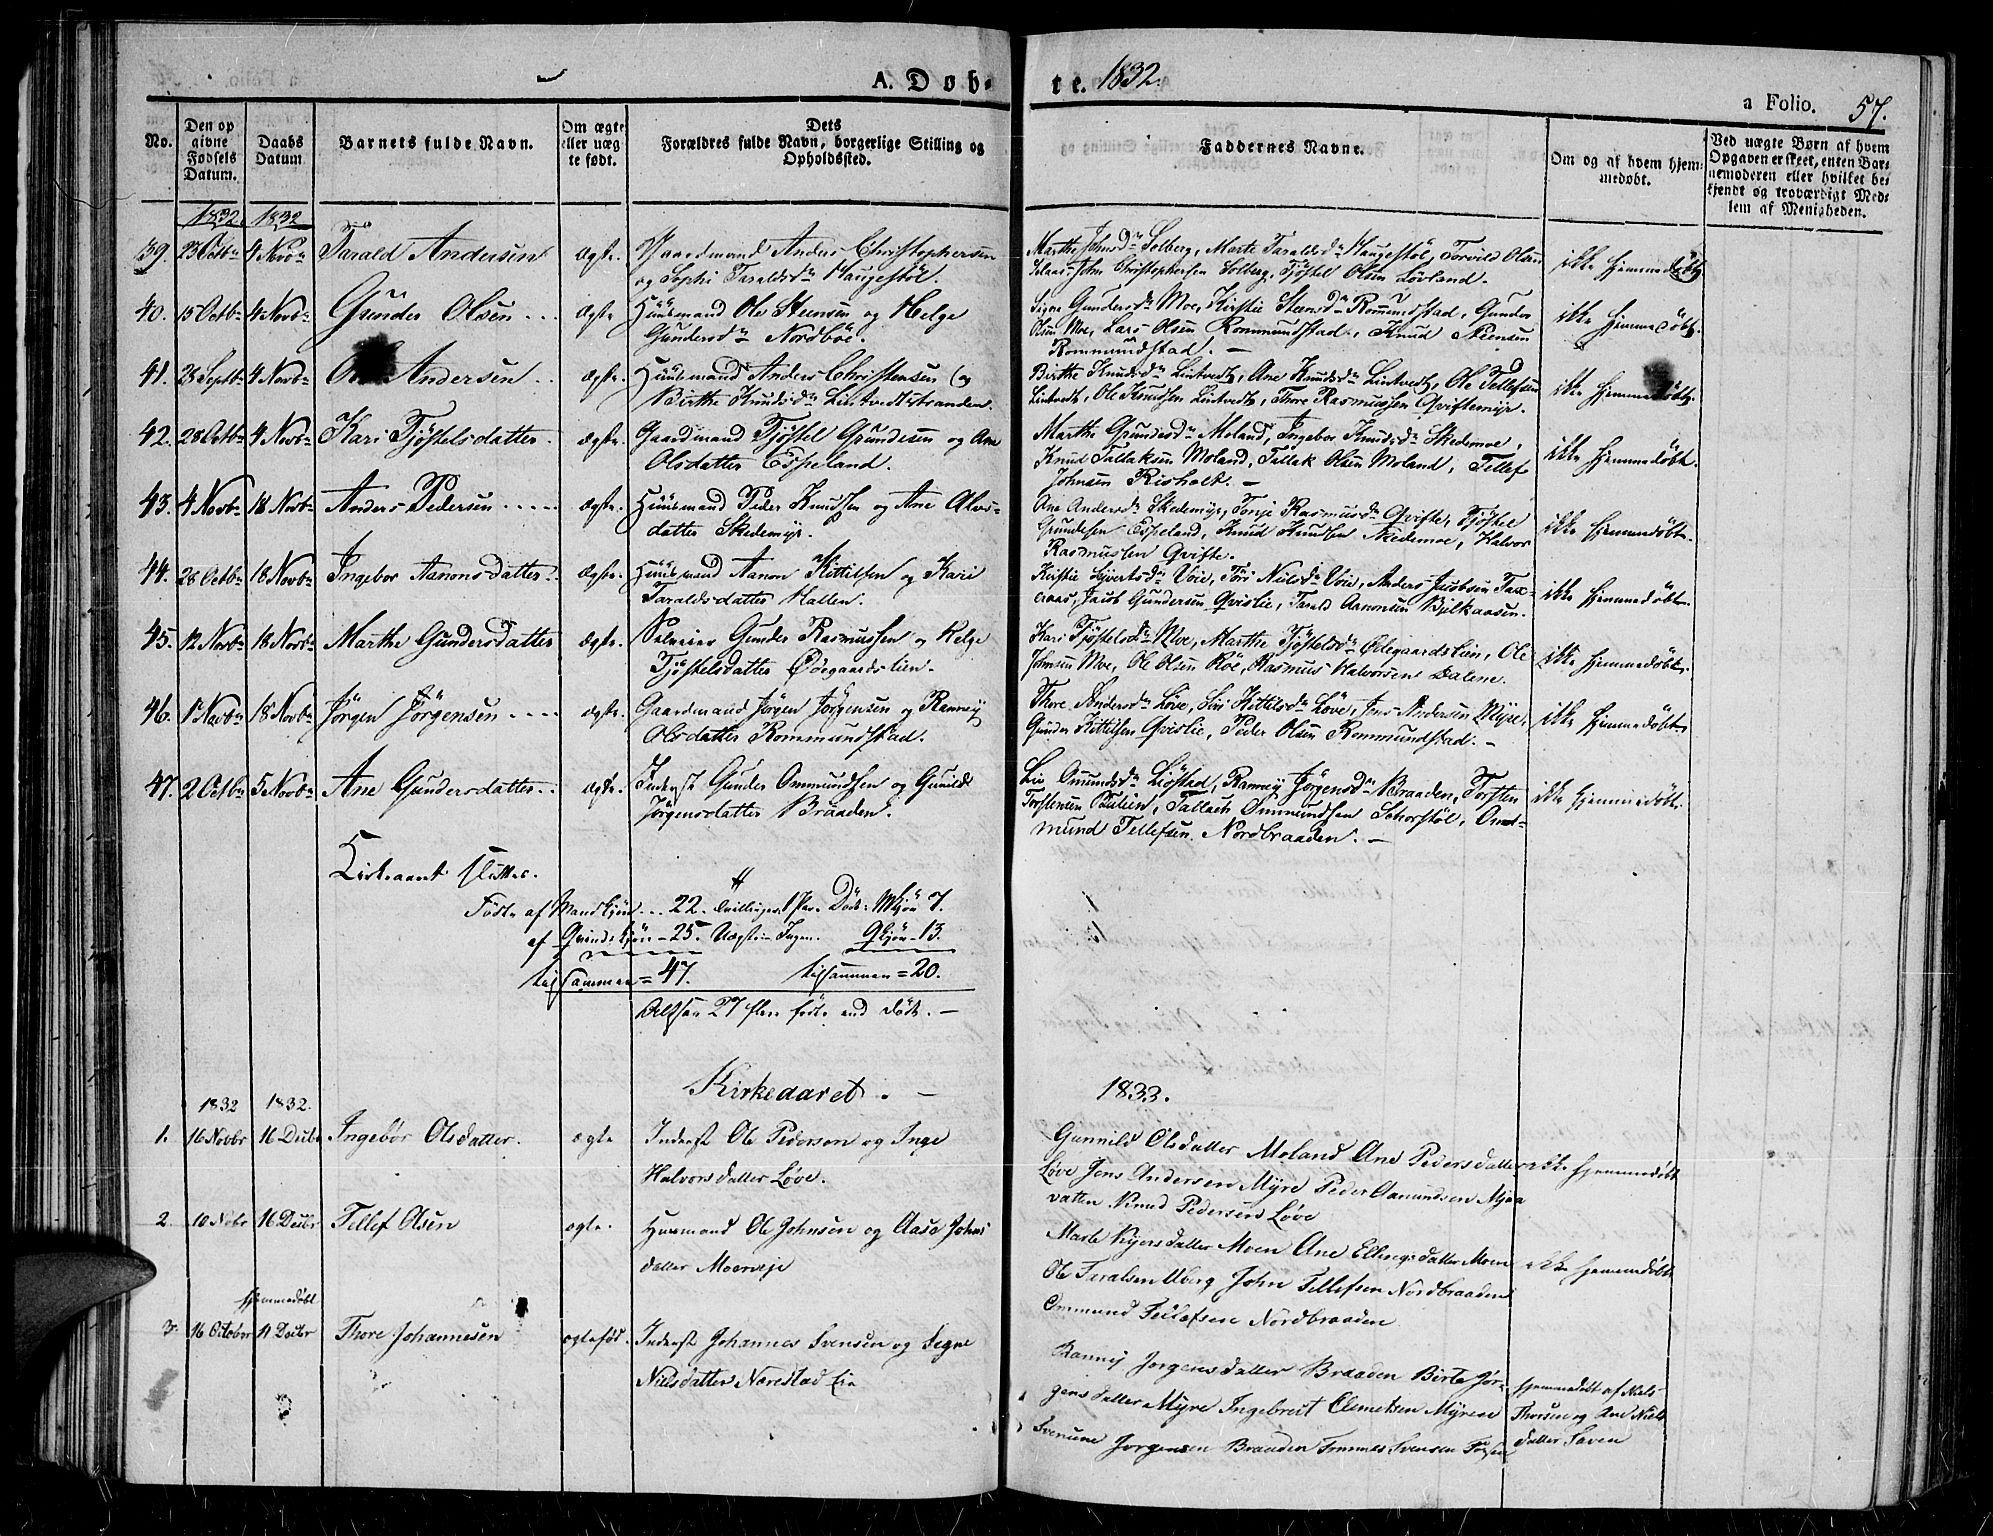 A. Døb-
te. 1832.
a Folio. 57.
No.
Den op
givne
Fødsels
Datum.
Daabs
Datum
Barnets fulde Navn.
Om ægte
eller uæg
te født.
Dets
Forældres fulde Navn, borgerlige Stilling og
Opholdssted.
Faddernes Navne.
Om og af hvem hjem-
medøbt.
Ved uægte Børn af hvem
Opgaven er skeet, enten Bar-
nemoderen eller hvilket be-
kjendt og troværdigt Med-
lem af Menigheden.
1832. 1832
39. 23 Octbr 4 Novbr Tarald Andersen ægte. Gaardmand Anders Christophersen
og Sophi Taraldsdr Haugestöl.
Marthe Johnsdr Solberg, Marte Taraldsdr Haugestöl, Torvild Olsen
John Christophersen Solberg, Tjöstel Olsen Lövland.
ikke hjemmedöbt
40. 15 Octbr 4 Novbr Gunder Olsen ... ægte Huusmand Ole Steensen og Helge
Gundersdr Nordböe.
Signe Gundersdr Moe, Kirstie Steensdr Rommundstad, Gunder
Olsen Moe, Lars Olsen Rommundstad, Knud Steensen
Rommundstad. —
ikke hjemmedöbt.
41. 23 Septbr 4 Novbr Ole Andersen .. ægte. Huusmand Anders Christensen og
Birthe Knudsdr Lintvedtstranden.
Birthe Knudsdr Lintvedt, Ane Knudsdr Lintvedt, Ole Tellefsen
Lintvedt, Ole Knudsen Lintvedt, Thore Rasmussen Qviftemyr.
ikke hjemmedöbt.
42. 28 Octbr 4 Novbr Kari Tjöstelsdatter. ægte. Gaardmand Tjöstel Grundesen og Ane
Olsdatter Espeland.
Marthe Grundesdr Moland, Ingebor Knudsdr Skedemoe,
Knud Tallaksen Moland, Tallak Olsen Moland, Tellef
Johnsen Risholt. —
ikke hjemmedöbt.
43. 4 Novbr 18 Novbr Anders Pedersen ..... ægte. Huusmand Peder Knudsen og Ane Alvs-
datter Skedemyr.
Ane Andersdr Skedemyr, Tonje Rasmusdr Qvifte, Tjöstel
Grundesen Espeland, Knud Knudsen Skedemoe, Halvor
Rasmussen Qvifte.
ikke hjemmedöbt.
44. 28 Octbr 18 Novbr Ingebor Aanonsdatter.. ægte. Huusmand Aanon Kittilsen og Kari
Taraldsdatter Hallen.
Kirstie Sjvertsdr Voie, Töri Nielsdr Voie, Anders Jacobsen
Jacob Gundersen Qvislie, Tarald Aanonsen
ikke hjemmedöbt.
45. 12 Novbr 18 Novbr Marthe Gundersdatter ægte. Gunder Rasmussen og Helge
Tjöstelsdatter Ödegaardslien.
Kari Tjöstelsdr Moe, Marthe Tjöstelsdr Ödegaardslien, Ole
Johnsen Moe, Ole Olsen Röe, Rasmus Halvorsen Dalene.
ikke hjemmedöbt.
46. 1 Novbr 18 Novbr Jörgen Jörgensen .... ægte. Gaardmand Jörgen Jörgensen og Ranneÿ
Olsdatter Rommundstad.
Thore Andersdr Löve, Siri Kittilsdr Löve, Jens Andersen Myre,
Gunder Kittilsen Qvislie, Peder Olsen Rommundstad. —
ikke hjemmedöbt
47. 2 Octbr 5 Novbr Ane Gundersdatter.. ægte. Inderst Gunder Ommundsen og Gunild
Jörgensdatter Braaden.
Liv Omundsdr Liöstad, Ranneÿ Jörgensdr Braaden, Torsten
Torstensen Tallach Ommundsen Schorstöl, Om-
mund Tellefsen Nordbraaden. —
ikke hjemmedöbt.
Kirkeaaret slutter.
Födte af Mandkjön ... 22. Tvillinger 1 Par. Döde Mkjön 7.
af Qvindekjön — 25. Uægte — Ingen. Qkjön — 13.
tilsammen = 47. tilsammen = 20.
Altsaa 27 flere födte end döde. —
Kirkeaaret. — 1833.
1832 1832.
1. 16 Novbr 16 Decbr Ingebör Olsdatter. ægte Inderst Ole Pedersen og Inge
Halvorsdatter Løve.
Gunnild Olsdatter Moland Ane Pedersdatter
Løve Jens Andersen Myre Peder Aamundsen
vatten Knud Pedersen Løve
ikke hjemmedøbt
2. 10 Novbr 16 Decbr Tellef Olsen ægte. Huusmand Ole Johnsen og Aase Johns
datter Moerveje
Marte Kjersdatter Moen Ane Ellingsdatter Moen
Ole Teralsen Uberg John Tellefsen Nordbraaden
Ommund Tellefsen Nordbraaden
ikke hjemmedøbt
hjemmedøbt
3. 16 October 11 Decbr Thore Johannesen ægtefød. Inderst Johannes Svensen og Segne
Nielsdatter Narestad Eie
Ranneij Jorgensdatter Braaden Birte Jør-
gensdatter Myre Ingebreit Clemetsen Myrene
Svenune Jorgensen Braaden Svensen
hjemmedøbt af Niels
Thorsen og Ane Niels
datter Saven